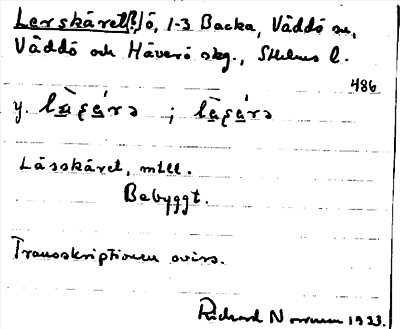 Lerskäret(?) ö, 1-3 Backa, Väddö sn,
Väddö och Häverö skg., Sthlms l.
486
y. ; 
Låsskäret, mtll.
Bebyggt.
Transskriptionen osäker.
Rickard Norrman 1933.